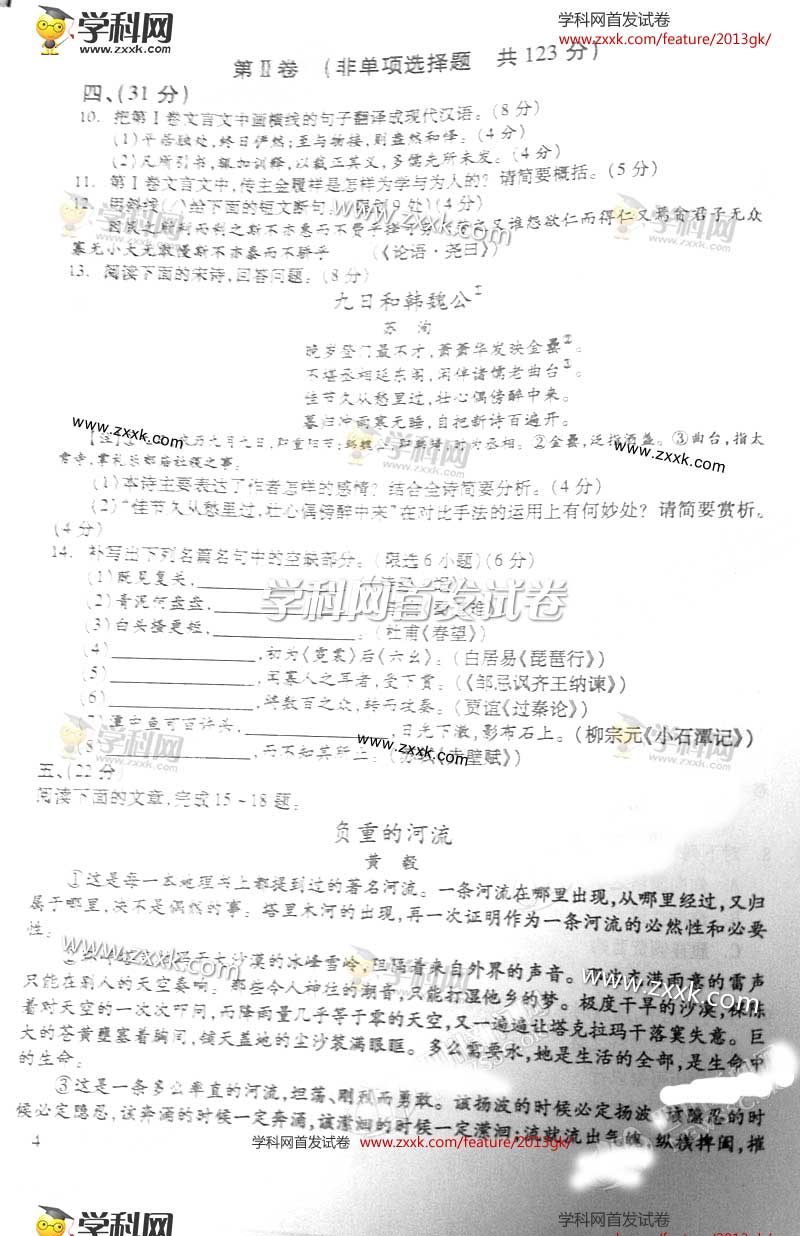 学科网
www.zxxk.com
学科网首发试卷
www.zxxk.com/feature/2013gk/
第Ⅱ卷 (非单项选择题 共123分)
四、(31分)
10. 把第Ⅰ卷文言文中画横线的句子翻译成现代汉语。(8分)
(1)平居独处,终日俨然;至与物接,则盎然和怿。(4分)
(2)凡所引书,辄加训释,以裁正其义,多儒先所未发。(4分)
11. 第Ⅰ卷文言文中,传主金履祥是怎样为学与为人的?请简要概括。(5分)
12. 用斜线(/)给下面的短文断句。(限断9处)(4分)
因民之所利而利之斯不亦惠而不费乎择可劳而劳之又谁怨欲仁而得仁又焉贪君子无众
寡无小大无敢慢斯不亦泰而不骄乎 (《论语·尧曰》)
13. 阅读下面的宋诗,回答问题。(8分)
九日和韩魏公①
苏 洵
晚岁登门最不才,萧萧华发映金罍②。
不堪丞相延东阁,闲伴诸儒老曲台③。
佳节久从愁里过,壮心偶傍醉中来。
暮归冲雨寒无睡,自把新诗百遍开。
②金罍,泛指酒盏。③曲台,指太
常寺,掌礼乐郊庙社稷之事。
(1)本诗主要表达了作者怎样的感情?结合全诗简要分析。(4分)
(2)“佳节久从愁里过,壮心偶傍醉中来”在对比手法的运用上有何妙处?请简要赏析。
(4分)
14. 补写出下列名篇名句中的空缺部分。(限选6小题)(6分)
(1)既见复关,
(2)青泥何盘盘,
学科网首发试卷
(3)白头搔更短, 。(杜甫《春望》)
(4) ,初为《霓裳》后《六幺》。(白居易《琵琶行》)
(5) ,闻寡人之耳者,受下赏。(《邹忌讽齐王纳谏》)
(6) ,将数百之众,转而攻秦。(贾谊《过秦论》)
(7)潭中鱼可百许头, ,日光下澈,影布石上。(柳宗元《小石潭记》)
(8) ,而不知其所止。 赤壁赋》)
五、(22分)
阅读下面的文章,完成15~18题。
负重的河流
黄 毅
①这是每一本地理书上都提到过的著名河流。一条河流在哪里出现,从哪里经过,又归
属于哪里,决不是偶然的事。塔里木河的出现,再一次证明作为一条河流的必然性和必要
性。
大沙漠的冰峰雪岭,阻隔着来自外界的声音。那饱含满雨意的雷声
只能在别人的天空奏响。那些令人神往的潮音,只能打湿他乡的梦。极度干旱的沙漠,
着对天空的一次次叩问,而降雨量几乎等于零的天空,又一遍遍让塔克拉玛干落寞失意。巨
大的苍黄壅塞着胸间,铺天盖地的尘沙装满眼眶。多么需要水,她是生活的全部,是生命中
的生命。
③这是一条多么率直的河流,坦荡、刚利而勇敢。该扬波的时候必定扬波,该隐忍的时
候必定隐忍,该奔涌的时候一定奔涌,该潆洄的时候一定潆洄;流就流出气魄,纵横捭阖,摧
4
学科网首发试卷
www.zxxk.com/feature/2013gk/